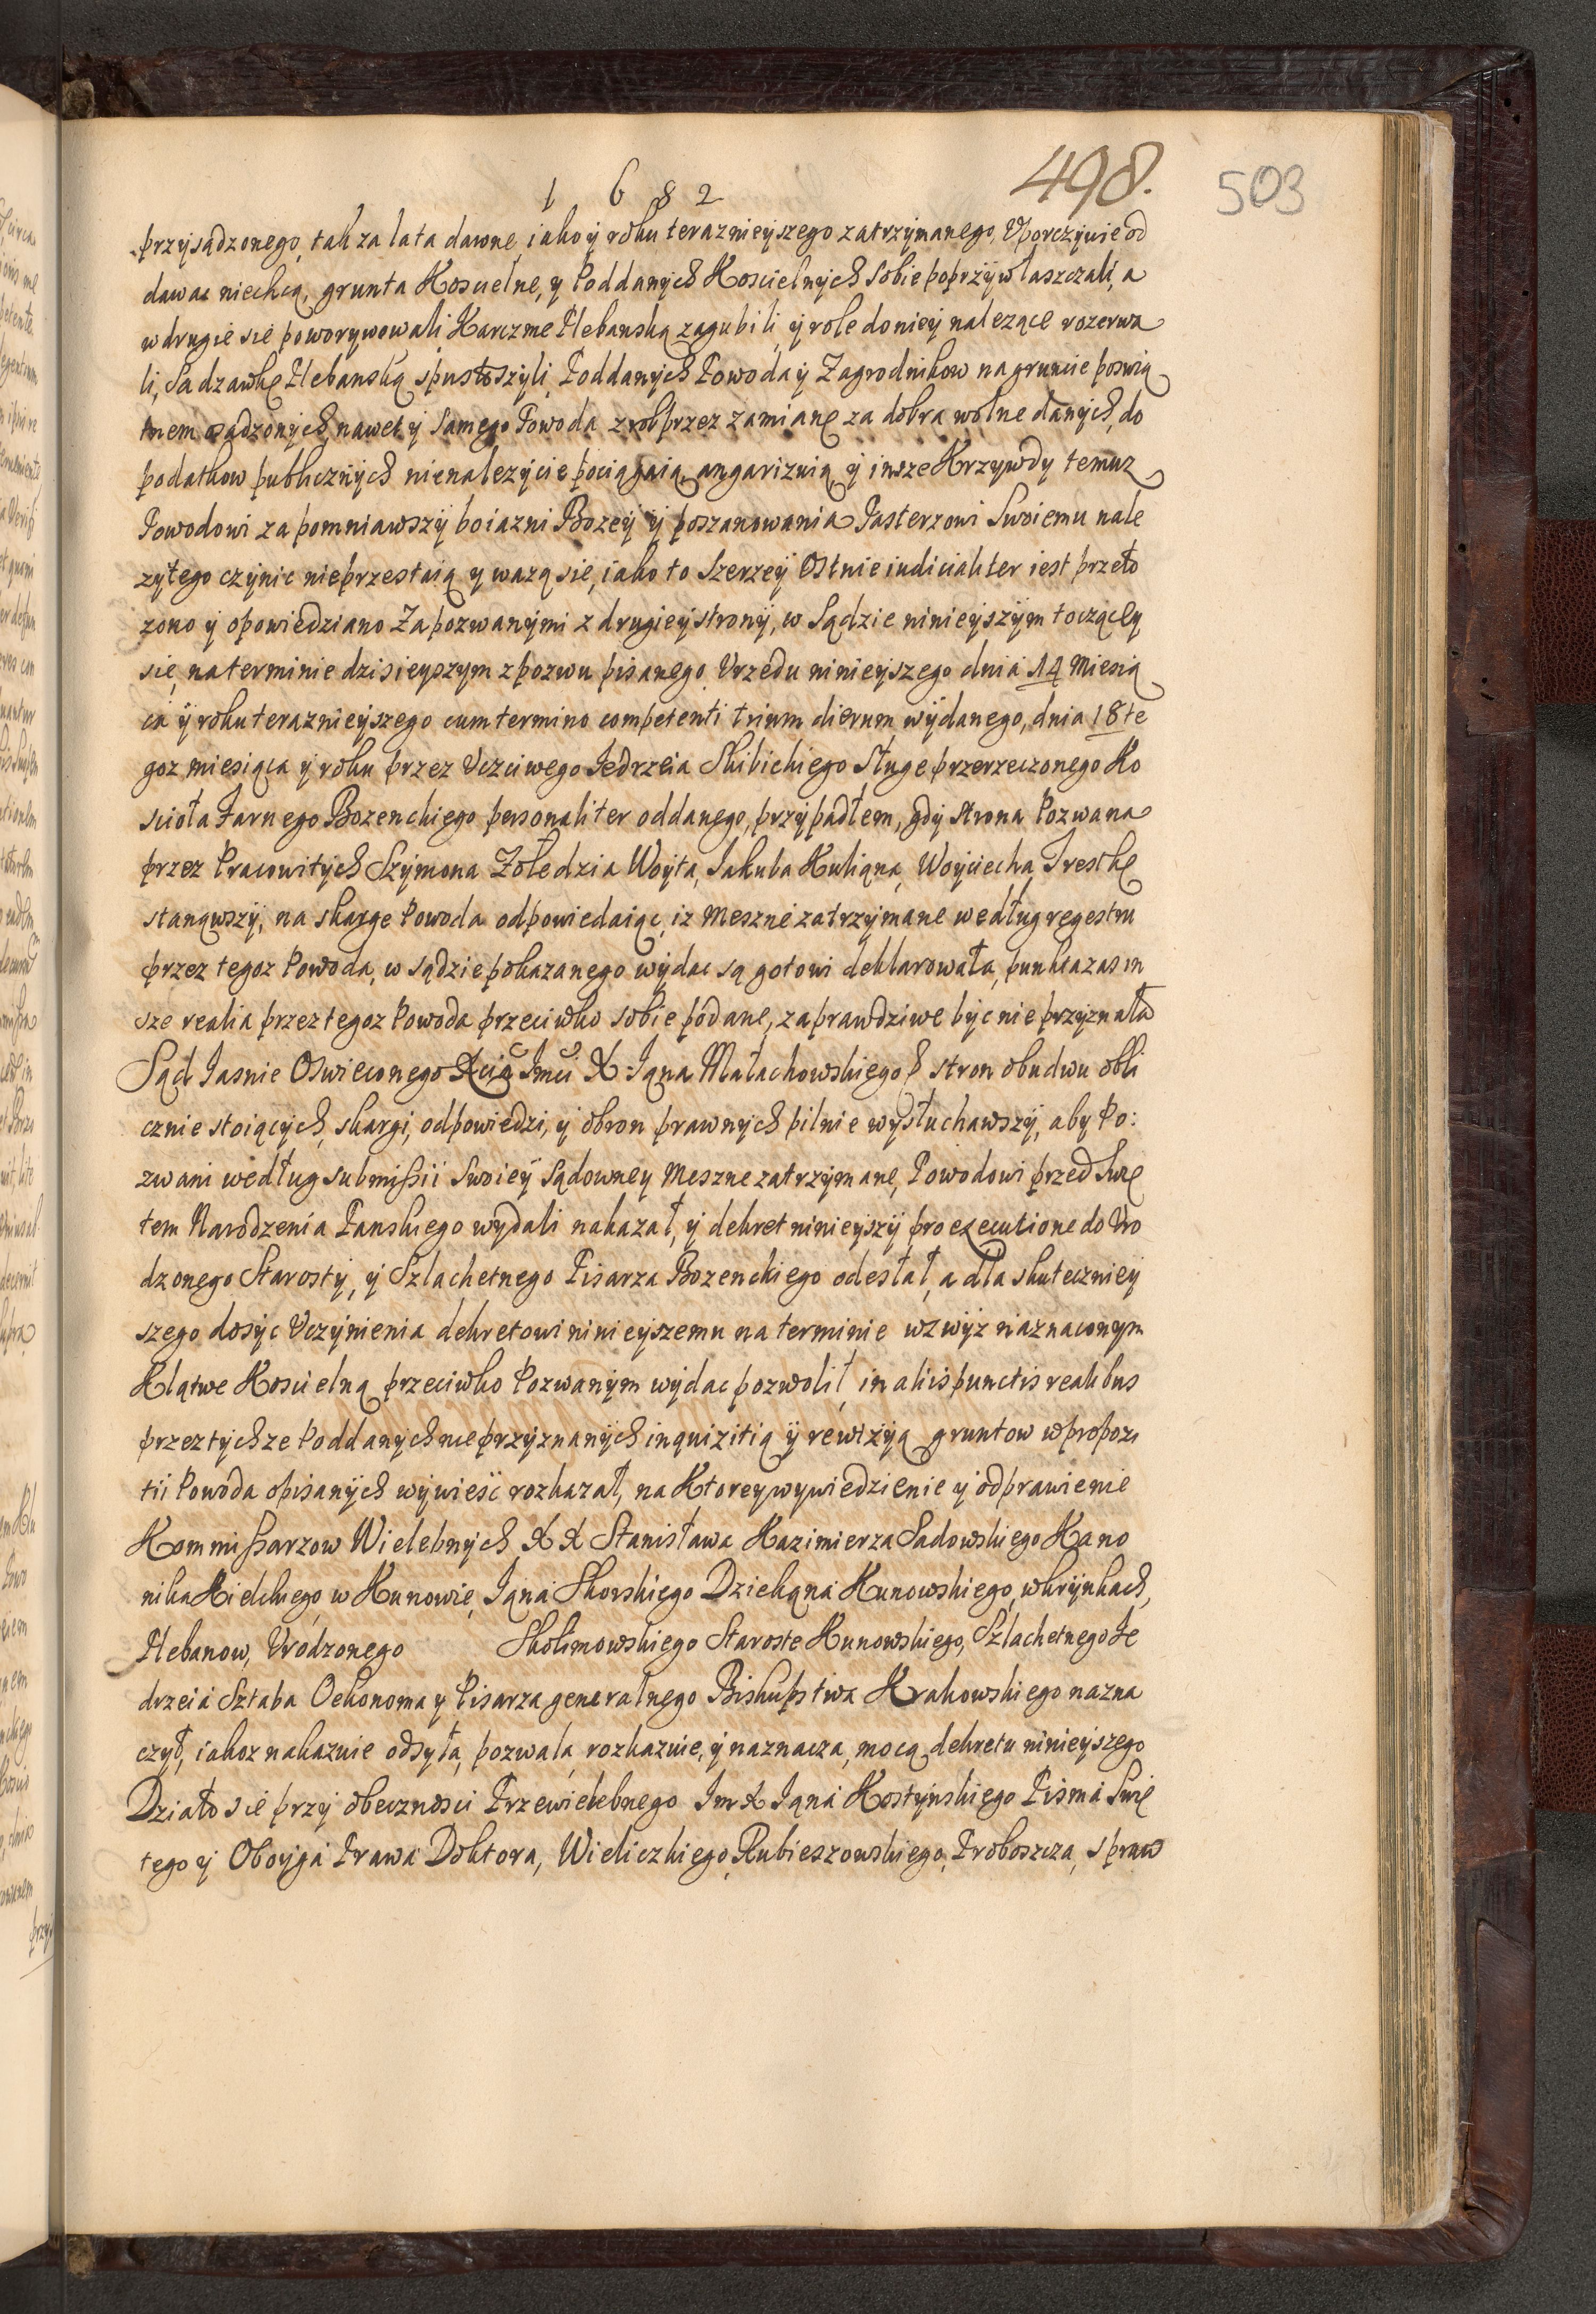 498.
503
1 6 8 2
przysądzonego, tak za lata dawne, iako y roku terazniejszego zatrzymanego, Vporczywie od
dawac niechcą, grunta Koscielne, y Poddanych Koscielnych sobie poprzywłaszczali, a
w drugie sie poworywowali Karczme Plebanską zagubili, y role do niey nalezące rozerwa
li, Sadzawkę Plebanską spustoszyli, Poddanych Powoda y Zagrodnikow na gruncie poswią
tnem osądzonych, nawet y samego Powoda z rol przez zamianę za dobra wolne danych, do
podatkow publicznych nienalezycie pociągaią, angarizuią, y insze Krzywdy temuz
Powodowi zapomniawszy boiazni Bozey y poszanowania Pasterzowi Swoiemu nale
zytego czynic nieprzestaią y wazą sie, iako to szerzey Ostnie iudicialiter iest przeło
zono y opowiedziano Zapozwanymi z drugiey strony, w Sądzie ninieyszym toczącey
się, na terminie dzisieyszym z pozwu pisanego Vrzedu ninieyszego dnia 14 Miesią
ca y roku terazniejszego cum termino competenti trium dierum wydanego, dnia 18 te
goz miesiąca y roku przez Vczciwego Jedrzeia Skibickiego Sługe przerzeczonego Ko
scioła Farnego Bozenckiego personaliter oddanego, przypadłem, gdy strona Pozwana
przez Pracowitych Szymona Zołedzia Woyta, Jakuba Kuligna, Woyciecha Treskę
stanąwszy, na skargę Powoda odpowiedaiąc, iz meszne zatrzymane według regestru
przez tegoz Powoda, w sądzie pokazanego wydac są gotowi deklarowała, punkta zas in
sze realia przez tegoz Powoda przeciwko sobie podane, za prawdziwe byc nie przyznała
Sąd Jasnie Oswieconego Xcia Jmci X Jana Małachowskiego stron obudwu obli
cznie stoiących, skargi, odpowiedzi, y obron prawnych pilnie wysłuchawszy, aby Po:
zwani według submißii swoiey sądowney Meszne zatrzymane, Powodowi przed Swię
tem Narodzenia Panskiego wydali nakazał, y dekret ninieyszy pro executione do Vro
dzonego Starosty, y Szlachetnego Pisarza Bozenckiego odesłał, a dla skuteczniey
szego dosyc Vczynienia dekretowi ninieyszemu na terminie wzwyz naznaconym
Klątwe Koscielną przeciwko Pozwanym wydac pozwolił, in aliis punctis realibus
przez tychze Poddanych nie przyznanych inquizitią y rewizyą gruntow w propozi
tii Powoda opisanych wywiesc rozkazał, na Ktorey wywiedzienie y odprawienie
Kommißarzow Wielebnych X X Stanisława Kazimierza Sadowskiego Kano
nika Kielckiego w Kunowie, Jana Skorskiego Dziekana Kunowskiego, w krynkach,
Plebanow, Vrodzonego Skolimowskiego Staroste Kunowskiego, Szlachetnego Je
drzeia Sztaba Oekonoma y Pisarza generalnego Biskupstwa Krakowskiego nazna
czył, iakoz nakazuie odsyła, pozwala, rozkazuie, y naznacza, mocą dekretu ninieyszego
Działo sie przy obecznosci Przewielebnego Jmx Jana Kostynskiego Pisma Swię
tego y Oboyga Prawa Doktora, Wieliczkiego, Rubieszowskiego, Proboszcza, spraw